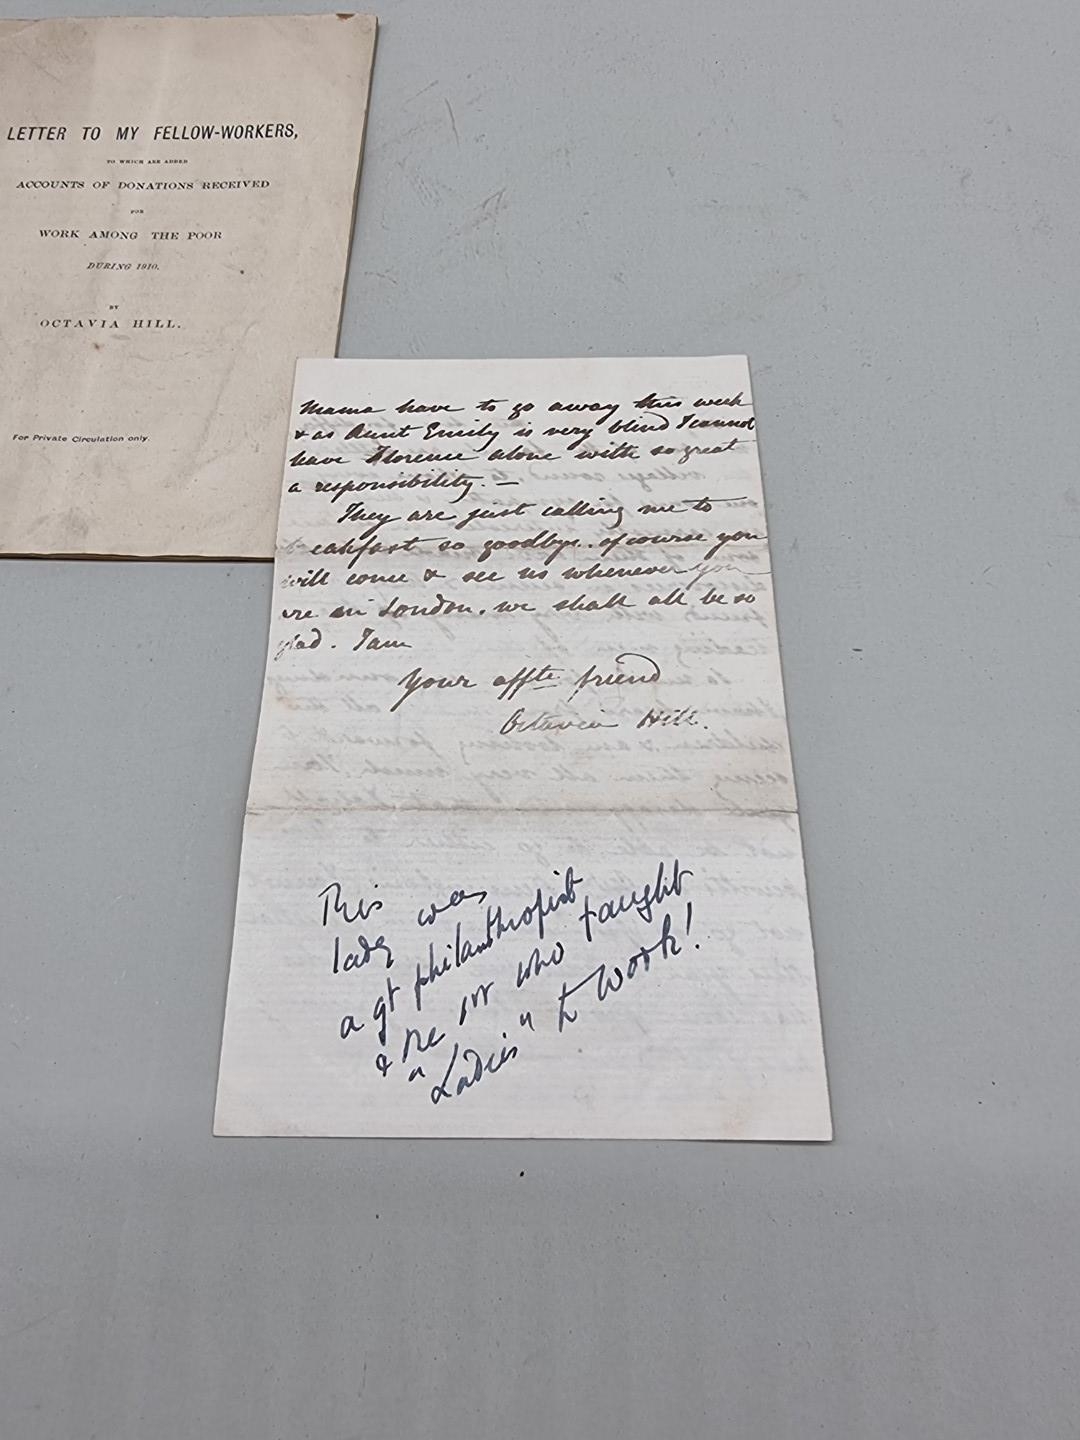 LETTER TO MY FELLOW-WORKERS,
TO WHICH ARE ADDED
ACCOUNTS OF DONATIONS RECEIVED
FOR
WORK AMONG THE POOR
DURING 1910.
BY
OCTAVIA HILL.
For Private Circulation only.
Mama have to go away this week
& as Aunt Emily is very blind I cannot
have Florence alone with so great
a responsibility. —
They are just calling me to
eakfast so goodbye. of course you
will come & see us whenever you
are in London. we shall all be so
glad. I am
Your affte friend
Octavia Hill.
This
lady was
a gt philanthropist
& the 1st who taught
"Ladies" to work!